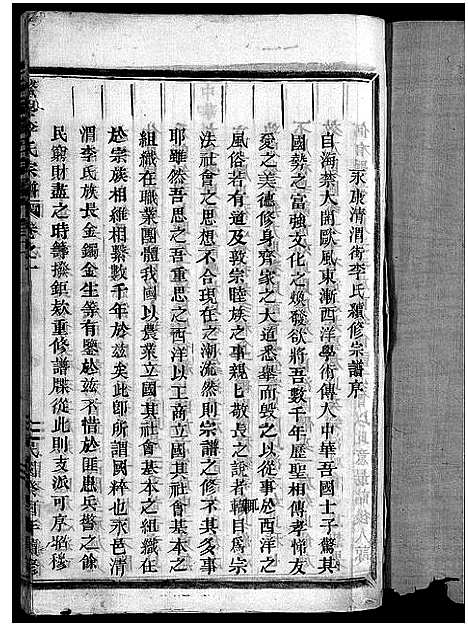 永康清渭街李氏續修宗譜序
自海禁大開歐風東漸西洋學術傳入中華吾國士子驚其
國勢之富強文化之煥發欲將吾數千年歷聖相傳孝悌友
愛之美德修身齊家之大道悉舉而毀之以從事於西洋之
風俗若有道及敦宗睦族之事親上敬長之說者輒目爲宗
法社會之思想不合現在之潮流然則宗譜之修不其多事
耶雖然吾思之吾重思之西洋以工商立國其社會基本之
組織在職業團體我國以農業立國其社會基本之組織在
於宗族相維相繫數千年於茲矣此即所謂國粹也永邑清
渭李氏族長金鐲金生等有鑒於茲不惜於匪患兵燹之餘
民窮財盡之時籌撥鉅欵重修譜牒從此則支派可序昭穆
李氏宗譜 卷之一
民國癸酉年續修